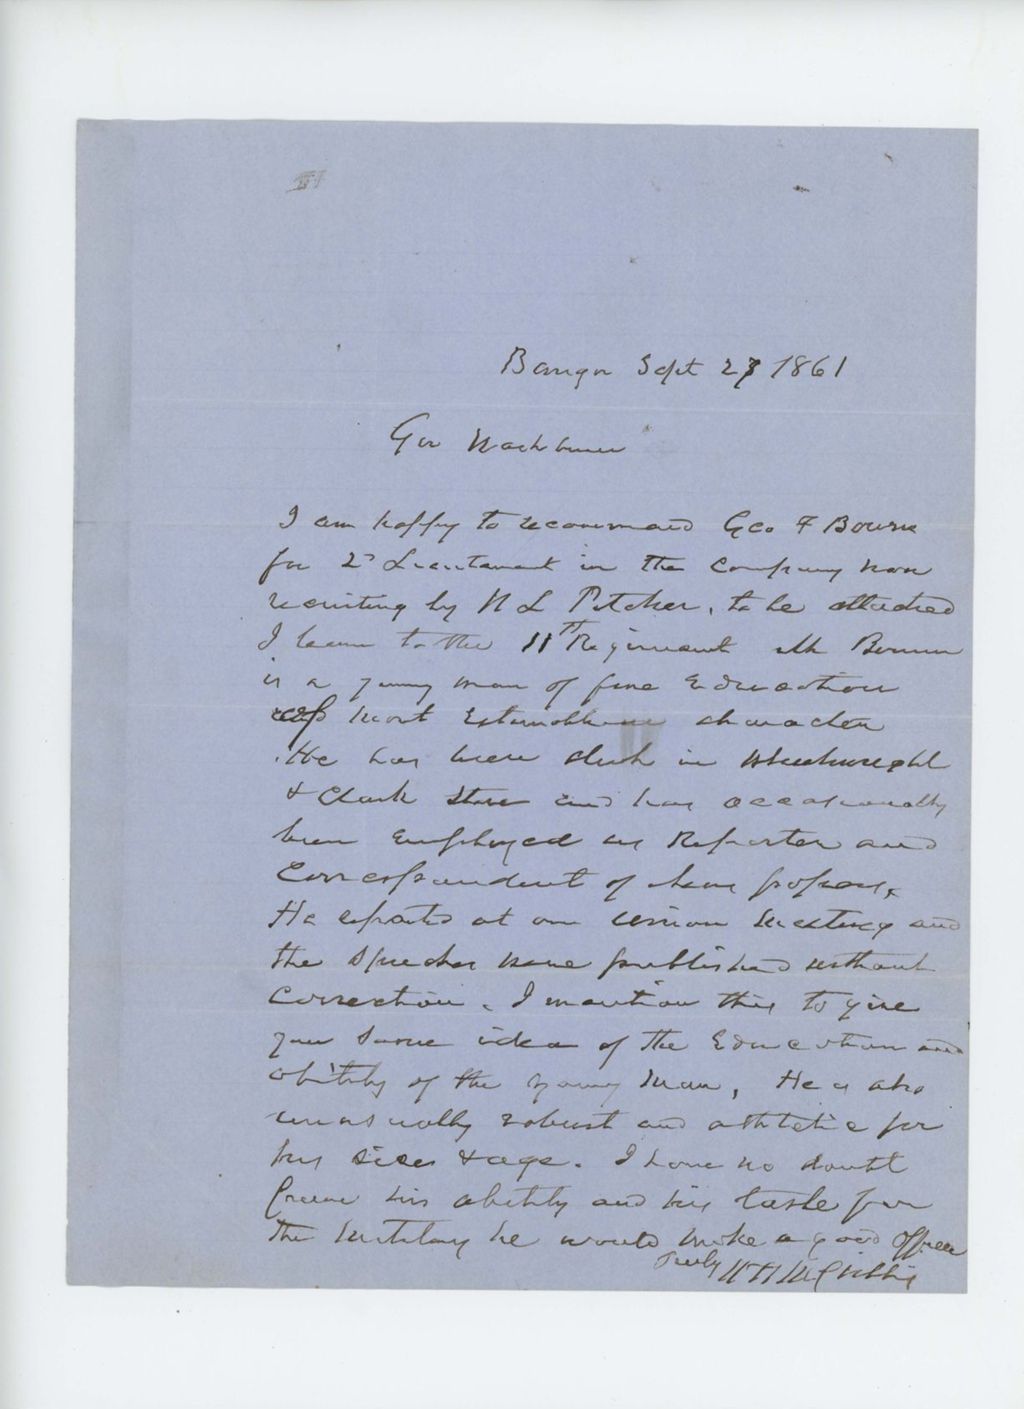 Bangor Sept 27 1861
Gov Washburn
I am happy to recommend Geo F Bourn
for 2d Lieutenant in the Company now
recruiting by N L Pitcher, to be attached
I learn to the 11th Regiment Mr Bourn
is a young man of fine Education
and most Estimable character
He has been clerk in Wheelwright
& Clark Store and has occasionally
been Employed as Reporter and
Correspondent of
He reported at our Union Meeting and
the Speeches were published without
correction. I mention this to give
you some idea of the Education and
ability of the young man, He is also
unusually robust and athletic for
his size & age. I have no doubt
from his ability and his taste for
the Military he would make a good officer
Truly W H McCrillis